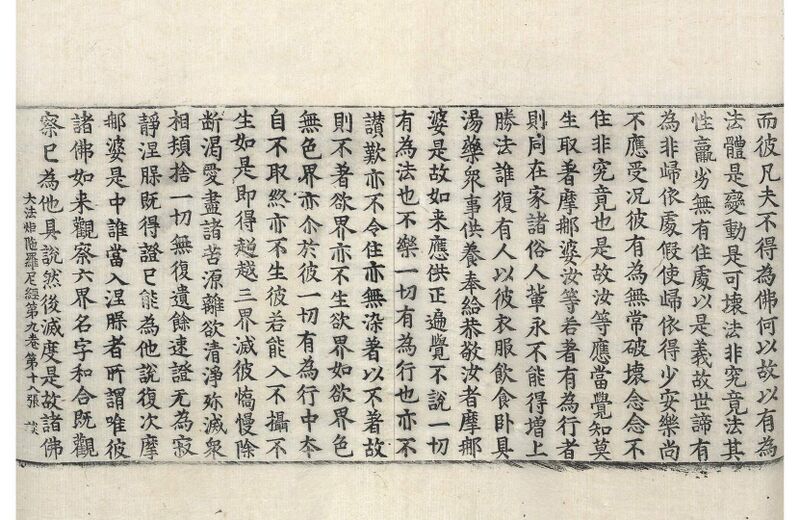 而彼凡夫不得為佛何以故以有為
法體是變動是可壞法非究竟法其
性羸劣無有住處以是義故世諦有
為非歸依處假使歸依得少安樂尚
不應受況彼有為無常破壞念念不
住非究竟也是故汝等應當覺知莫
生取著摩那婆汝等若著有為行者
則同在家諸俗人輩永不能得增上
勝法誰復有人以彼衣服飲食卧具
湯藥衆事供養奉給恭敬汝者摩那
婆是故如来應供正遍覺不說一切
有為法也不樂一切有為行也亦不
讃歎亦不令住亦無染著以不著故
則不著欲界亦不生欲界如欲界色
無色界亦尒於彼一切有為行中夲
自不取終亦不生彼若能入不攝不
生如是即得超越三界滅彼憍慢除
断渇愛盡諸苦源離欲清淨殄滅衆
相頓捨一切無復遺餘速證无為寂
靜涅槃既得證已能為他說復次摩
那婆是中誰當入涅槃者所謂唯彼
諸佛如来觀察六界名字和合既觀
察已為他具說然後滅度是故諸佛
大法炬陁羅尼經第九卷 第十八張